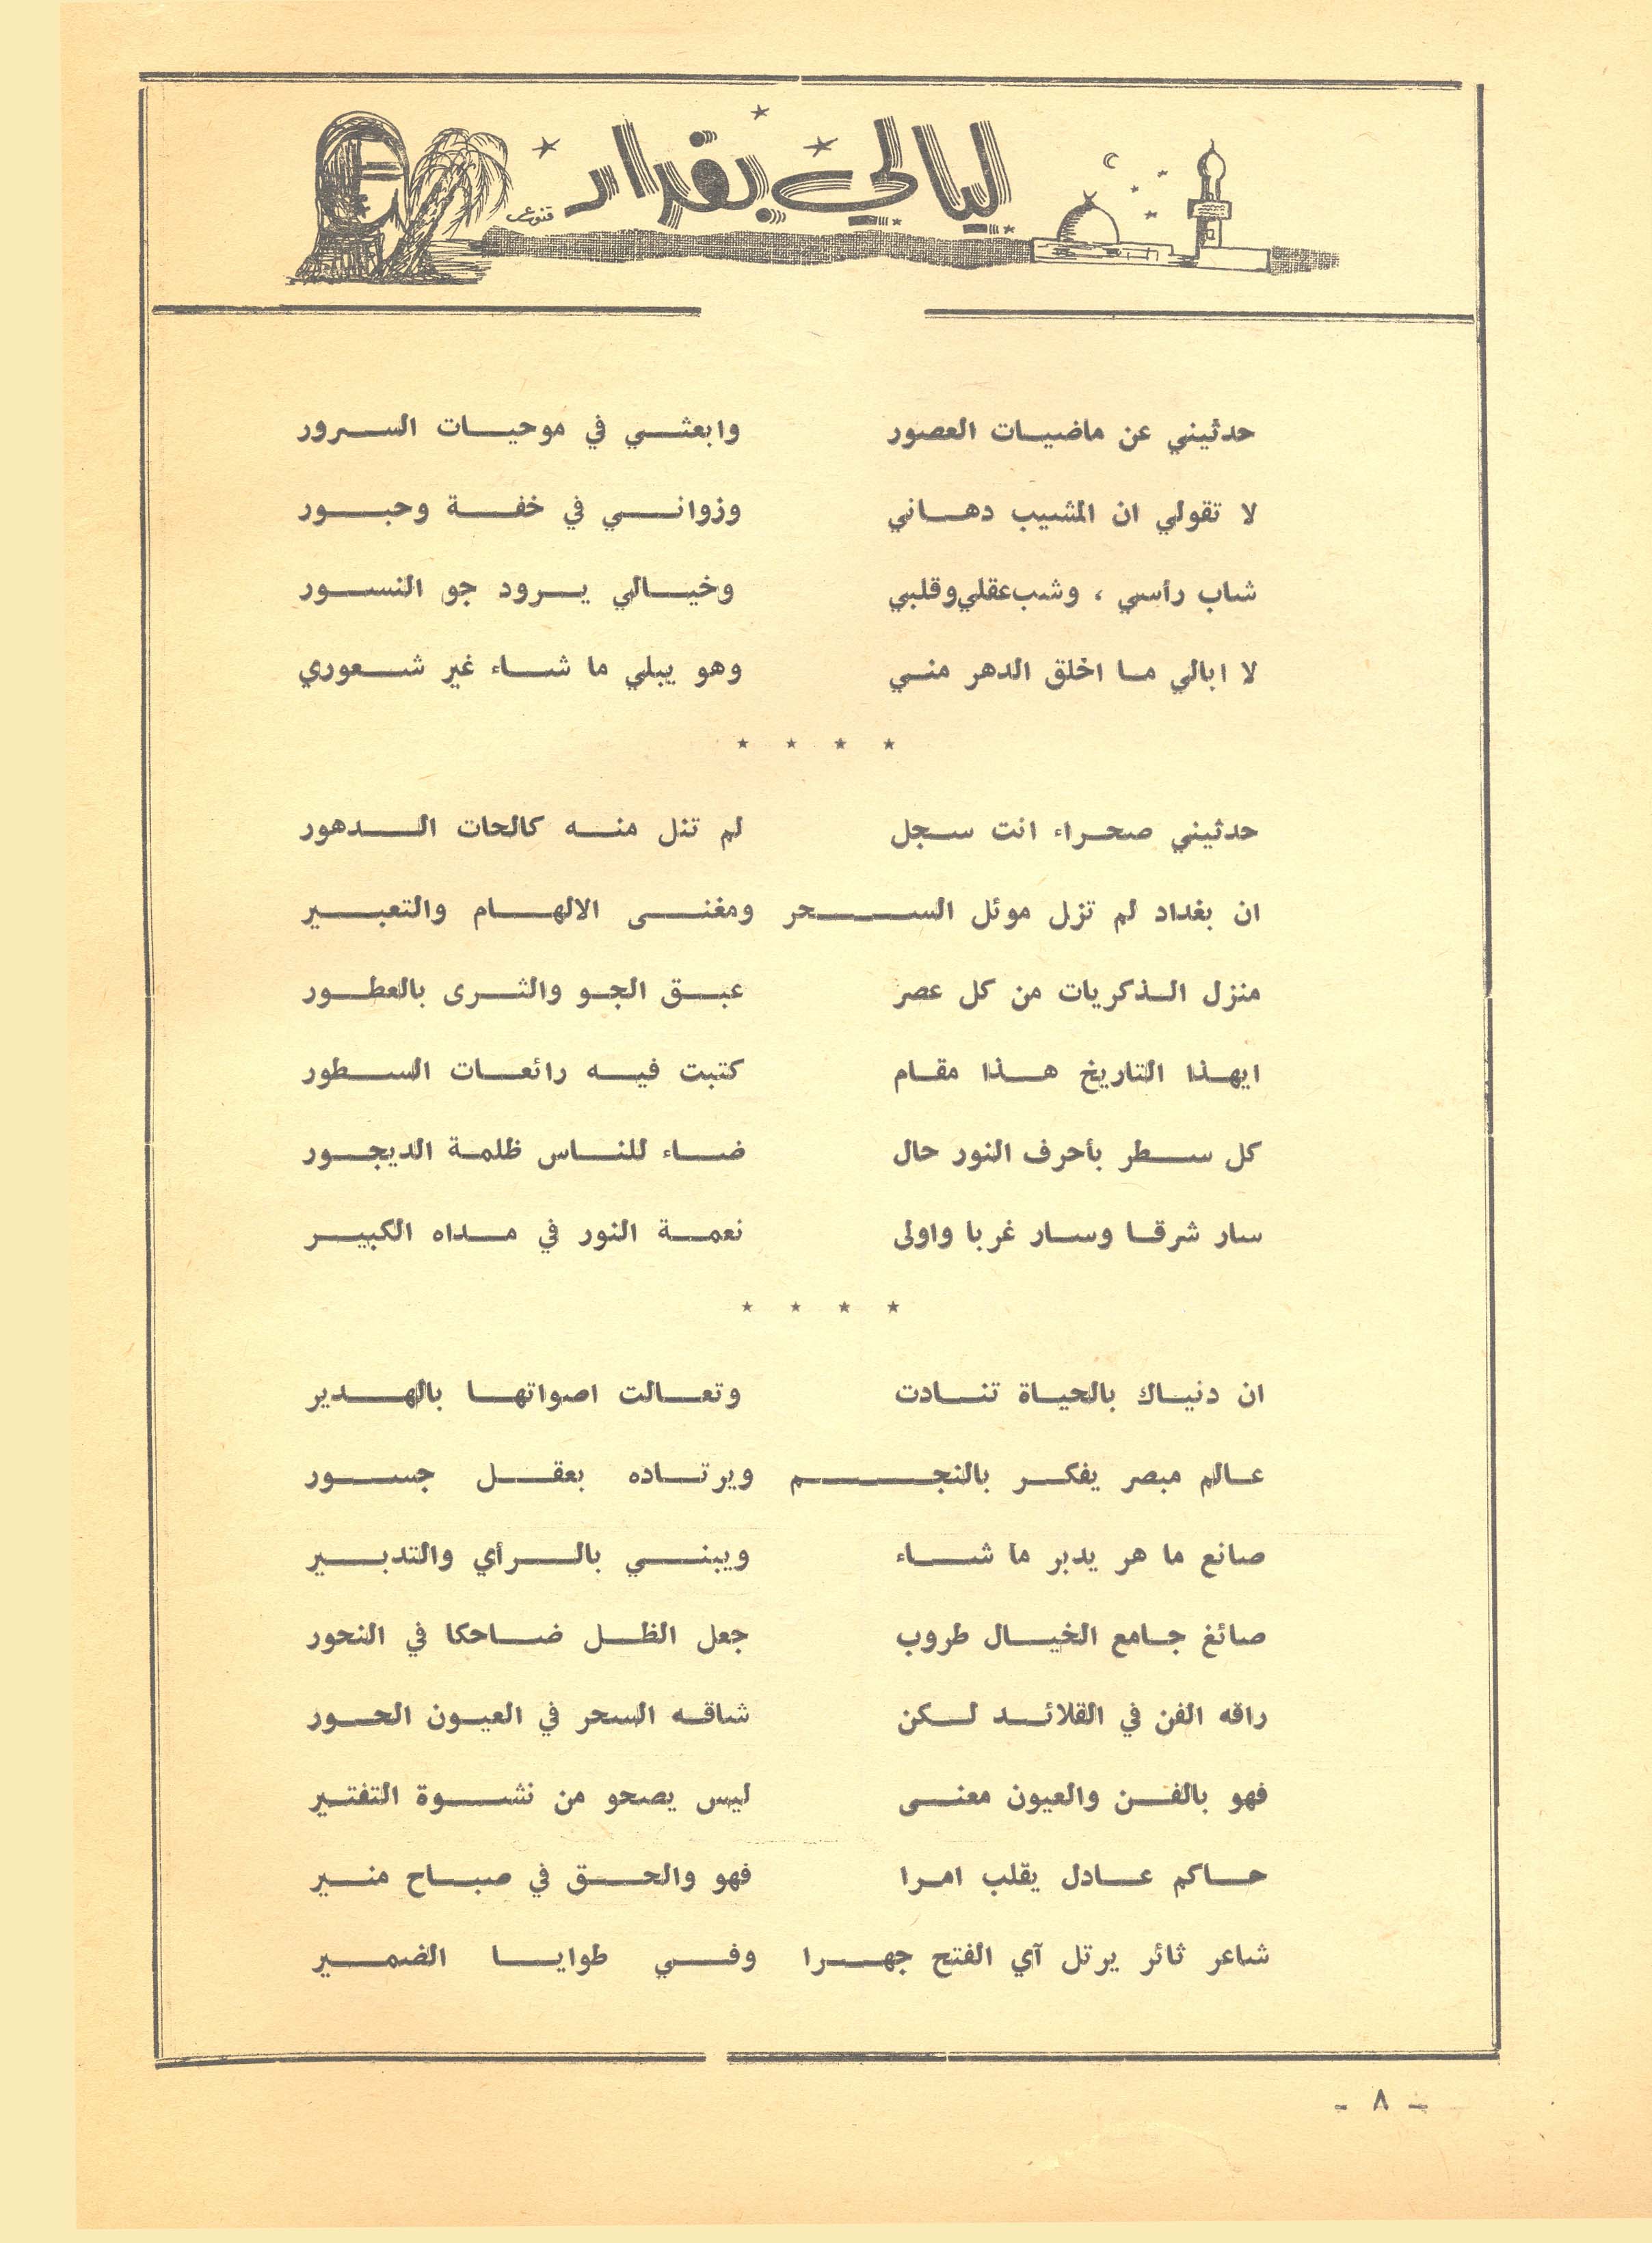 ليالي بغداد
حدثيني عن ماضيات العصور وابعثي في موحيات السرور
لا تقولي ان المشيب دهاني وزواني في خفة وحبور
شاب رأسي ، وشب عقلي وقلبي وخيالي يرود جو النسور
لا ابالي ما اخلق الدهر مني وهو يبلي ما شاء غير شعوري
* * * *
حدثيني صحراء انت سجل لم تنل منه كالحات الدهور
ان بغداد لم تزل موئل السحر ومغنى الالهام والتعبير
منزل الذكريات من كل عصر عبق الجو والثرى بالعطور
ايهذا التاريخ هذا مقام كتبت فيه رائعات السطور
كل سطر بأحرف النور حال ضاء للناس ظلمة الديجور
سار شرقا وسار غربا واولى نعمة النور في مداه الكبير
* * * *
ان دنياك بالحياة تنادت وتعالت اصواتها بالهدير
عالم مبصر يفكر بالنجم ويرتاده بعقل جسور
صانع ما هر يدبر ما شاء ويبني بالرأي والتدبير
صائغ جامع الخيال طروب جعل الظل ضاحكا في النحور
راقه الفن في القلائد لكن شاقه السحر في العيون الحور
فهو بالفن والعيون معنى ليس يصحو من نشوة التفتير
حاكم عادل يقلب امرا فهو والحق في صباح منير
شاعر ثائر يرتل آي الفتح جهرا وفي طوايا الضمير
- ٨ -